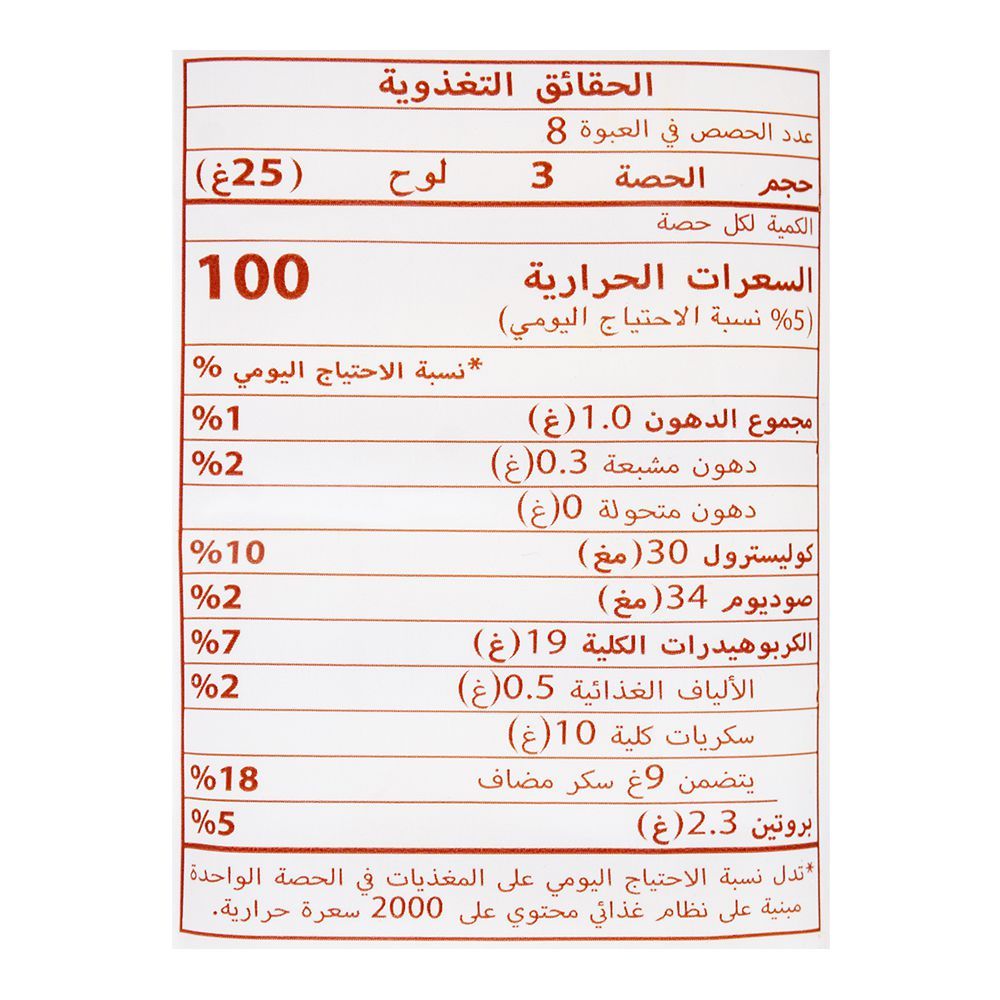 الحقائق التغذوية
عدد الحصص في العبوة 8
حجم الحصة 3 لوح (25غ)
الكمية لكل حصة
السعرات الحرارية 100
(5% نسبة الاحتياج اليومي)
*نسبة الاحتياج اليومي %
مجموع الدهون 1.0(غ) 1%
دهون مشبعة 0.3(غ) 2%
دهون متحولة 0(غ)
كوليسترول 30(مغ) 10%
صوديوم 34(مغ) 2%
الكربوهيدرات الكلية 19(غ) 7%
الألياف الغذائية 0.5(غ) 2%
سكريات كلية 10(غ)
يتضمن 9غ سكر مضاف 18%
بروتين 2.3(غ) 5%
*تدل نسبة الاحتياج اليومي على المغذيات في الحصة الواحدة
مبنية على نظام غذائي محتوي على 2000 سعرة حرارية.